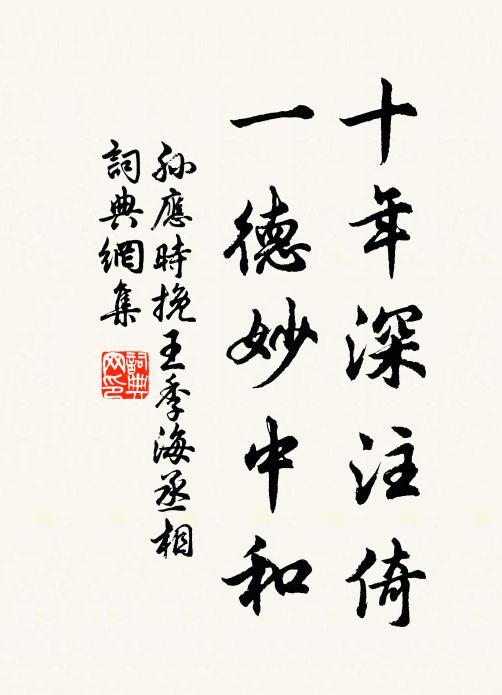 十年深注倚
一德妙中和
孫應時挽王季海丞相
詞典網集
詞典
网印